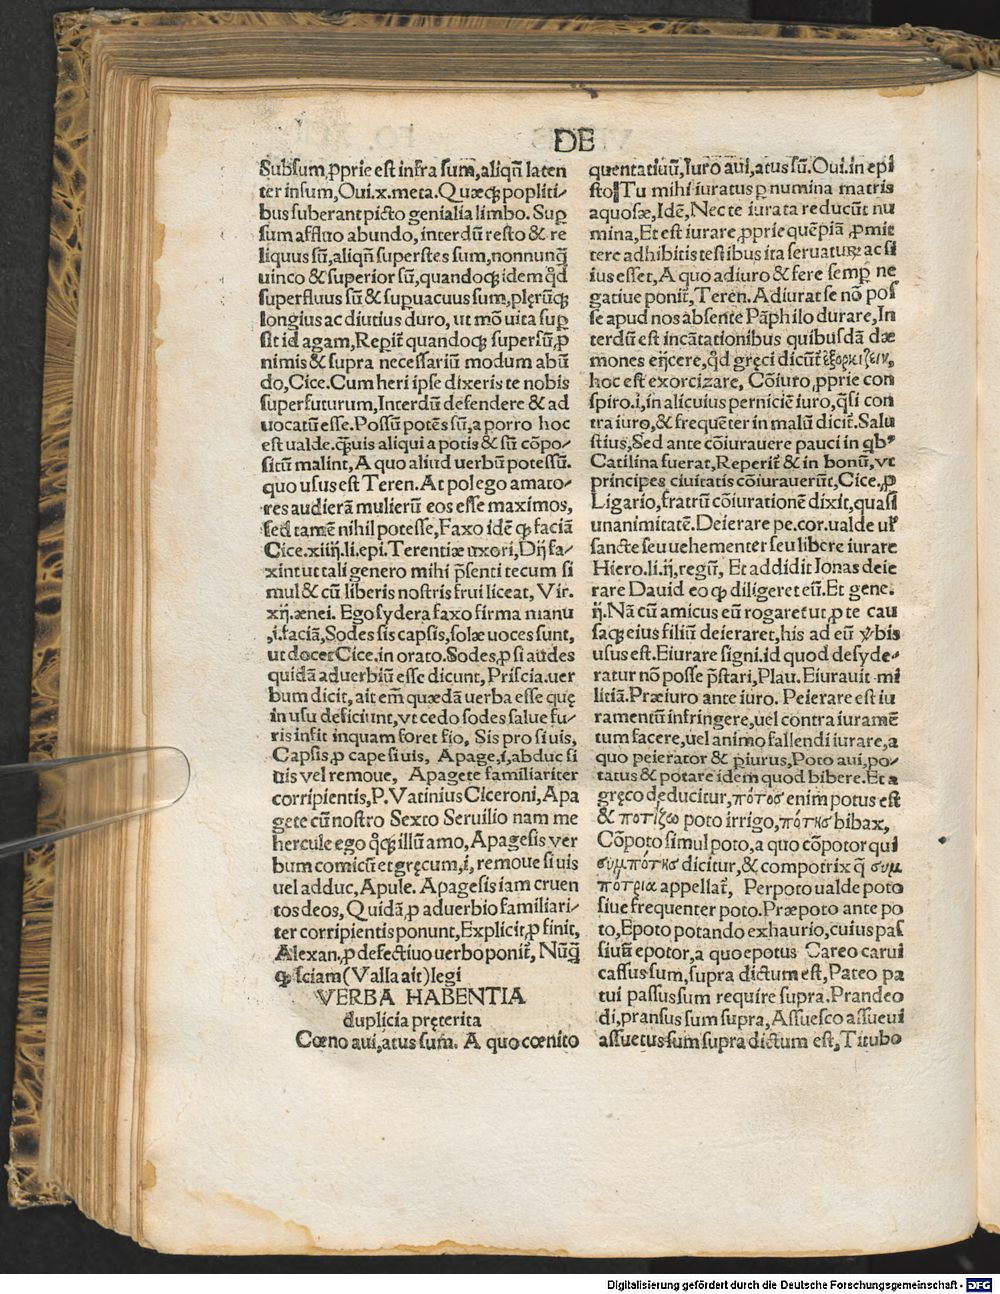 DE
Subsum, ꝓprie est infra sum, aliqñ laten
ter insum, Oui.x.meta. Quæcꝙ popliti⸗
bus suberant picto genialia limbo. Sup̲
sum affluo abundo, interdũ resto & re
liquus sũ, aliqñ superstes sum, nonnunꝗ̃
uinco & superior sũ, quandocꝙ idem qd̃
superfluus sũ & supuacuus sum, plęrũcꝙ
longius ac diutius duro, ut mõ uita sup̲
sit id agam, Reperit̃ quandocꝙ supersũ, ꝓ
nimis & supra necessariũ modum abũ
do, Cice. Cum heri ipse dixeris te nobis
superfuturum, Interdũ defendere & ad
uocatũ esse. Possũ potẽs sũ, a porro hoc
est ualde. ꝗ̃uis aliqui a potis & sũ cõpo⸗
sitũ malint, A quo aliud uerbũ potessũ.
quo usus est Teren. At pol ego amato⸗
res audierã mulierũ eos esse maximos,
sed tamẽ nihil potesse, Faxo idẽ ꝙ faciã
Cice.xiiij.li.epi. Terentiæ uxori, Dij fa⸗
xint ut tali genero mihi p̃senti tecum si
mul & cũ liberis nostris frui liceat, Vir.
xij.ænei. Ego sydera faxo firma manu
,i. faciã, Sodes sis capsis, solæ uoces sunt,
ut docet Cice. in orato. Sodes, ꝓ si audes
quidã aduerbiũ esse dicunt, Priscia. uer
bum dicit, ait em̃ quædã uerba esse quę
in usu deficiunt, vt cedo sodes salue fu⸗
ris infit inquam foret fio, Sis pro si uis,
Capsis, ꝓ cape si uis, Apage, i, abduc si
uis vel remoue, Apagete familiariter
corripientis, P. Vatinius Ciceroni, Apa
gete cũ nostro Sexto Seruilio nam me
hercule ego q̊cꝙ illũ amo, Apagesis ver
bum comicũ et gręcum, i, remoue si uis
uel adduc, Apule. Apagesis iam cruen
tos deos, Quidã, ꝓ aduerbio familiari⸗
ter corripientis ponunt, Explicit, ꝓ finit,
Alexan., ꝓ defectiuo uerbo ponit̃, Nũꝗ̃
ꝙ sciam (Valla ait) legi
VERBA HABENTIA
duplicia pręterita
Cœno aui, atus sum. A quo cœnito
quentatiuũ, Iuro aui, atus sũ. Oui. in epi
stol Tu mihi iuratus p̲ numina matris
aquosæ, Idẽ, Nec te iurata reducũt nu
mina, Et est iurare, ꝓprie quẽpiã ꝓmit
tere adhibitis testibus ita seruaturꝝ ac si
ius esset, A quo adiuro & fere semp̲ ne
gatiue ponit̃, Teren. Adiurat se nõ pos
se apud nos absente Pãphilo durare, In
terdũ est incãtationibus quibusdã dæ
mones eijcere, qd̃ gręci dicũt ἐξορκίζειν,
hoc est exorcizare, Cõiuro, ꝓprie con
spiro.i, in alicuius perniciẽ iuro, ꝗ̃si con
tra iuro, & frequẽter in malũ dicit̃. Salu
stius, Sed ante cõiurauere pauci in qbꝰ
Catilina fuerat, Reperit̃ & in bonũ, vt
principes ciuitatis cõiurauerũt, Cice. ꝓ
Ligario, fratrũ cõiurationẽ dixit, quasi
unanimitatẽ. Deierare pe.cor. ualde ul̃
sancte seu uehementer seu libere iurare
Hiero.li.ij, regũ, Et addidit Ionas deie
rare Dauid eo ꝙ diligeret eũ. Et gene.
ij. Nã cũ amicus eũ rogaret ut, ꝓ te cau
sacꝙ eius filiũ deieraret, his ad eũ v̾bis
usus est. Eiurare signi. id quod desyde⸗
ratur nõ posse p̃stari, Plau. Eiurauit mi
litiã. Præiuro ante iuro. Peierare est iu
ramentũ infringere, uel contra iuramẽ
tum facere, uel animo fallendi iurare, a
quo peierator & p̱iurus, Poto aui, po⸗
tatus & potare idem quod bibere. Et a
gręco deducitur, πότοσ enim potus est
& ποτίζω poto irrigo, πότησ bibax,
Cõpoto simul poto, a quo cõpotor qui
συμπότησ dicitur, & compotrix q̃ συμ
πότρια appellat̃, Perpoto ualde poto
siue frequenter poto. Præpoto ante po
to, Epoto potando exhaurio, cuius pas
siuũ epotor, a quo epotus Careo carui
cassus sum, supra dictum est, Pateo pa
tui passus sum require supra. Prandeo
di, pransus sum supra, Assuesco assueui
assuetus sum supra dictum est, Titubo
Digitalisierung gefördert durch die Deutsche Forschungsgemeinschaft - DFG